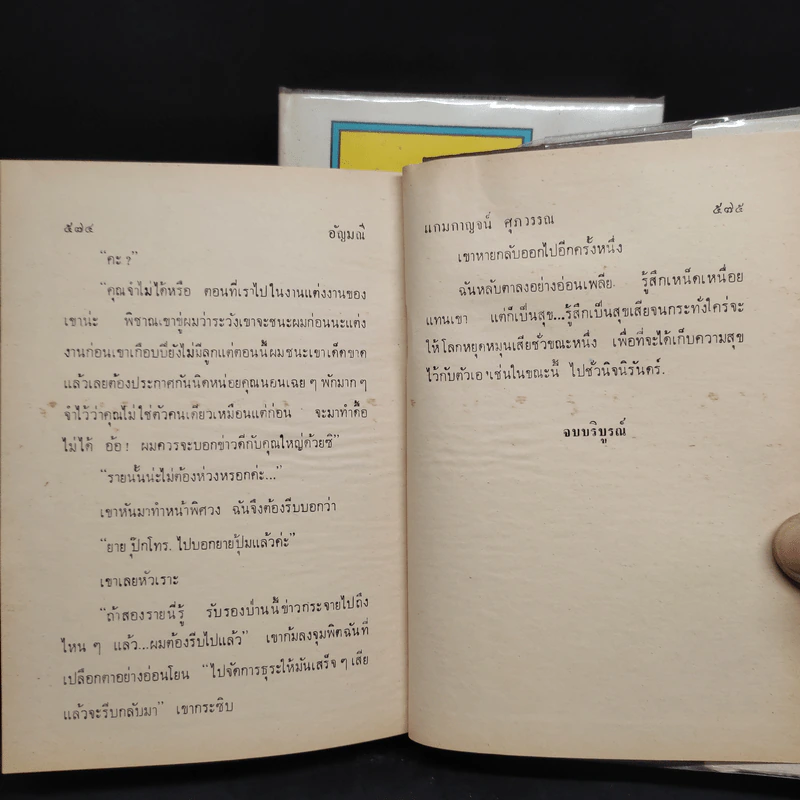 ๕๗๔
อัญมณี
"คะ?"
"คุณจำไม่ได้หรือ ตอนที่เราไปในงานแต่งงานของ
เขาน่ะ พิชาณเขาขู่ผมว่าระวังเขาจะชนะผมก่อนนะแต่ง
งานก่อนเขาเกือบปียังไม่มีลูกแต่ตอนนี้ผมชนะเขาเด็ดขาด
แล้วเลยต้องประกาศกันนิดหน่อยคุณนอนเฉย ๆ พักมาก ๆ
จำไว้ว่าคุณไม่ใช่ตัวคนเดียวเหมือนแต่ก่อน จะมาทำดื้อ
ไม่ได้ อ้อ! ผมควรจะบอกข่าวดีกับคุณใหญ่ด้วยซิ"
"รายนั้นน่ะไม่ต้องห่วงหรอกค่ะ..."
เขาหันมาทำหน้าพิศวง ฉันจึงต้องรีบบอกว่า
"ยาย ปุ๊กโทร. ไปบอกยายปุ้มแล้วค่ะ"
เขาเลยหัวเราะ
"ถ้าสองรายนี่รู้ รับรองป่านนี้ข่าวกระจายไปถึง
ไหน ๆ แล้ว...ผมต้องรีบไปแล้ว" เขาก้มลงจุมพิตฉันที่
เปลือกตาอย่างอ่อนโยน "ไปจัดการธุระให้มันเสร็จ ๆ เสีย
แล้วจะรีบกลับมา" เขากระซิบ
แกมกาญจน์ ศุภวรรณ
๕๗๕
เขาหายกลับออกไปอีกครั้งหนึ่ง
ฉันหลับตาลงอย่างอ่อนเพลีย รู้สึกเหน็ดเหนื่อย
แทนเขา แต่ก็เป็นสุข...รู้สึกเป็นสุขเสียจนกระทั่งใคร่จะ
ให้โลกหยุดหมุนเสียชั่วขณะหนึ่ง เพื่อที่จะได้เก็บความสุข
ไว้กับตัวเองเช่นในขณะนี้ ไปชั่วนิจนิรันดร์.
จบบริบูรณ์